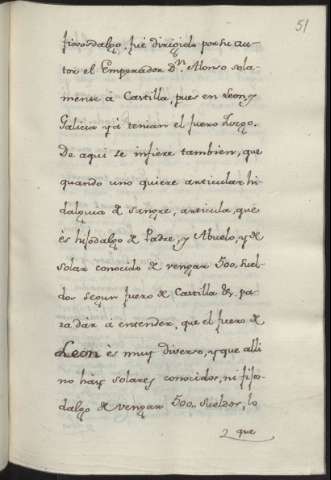 51
fixosdalgo, fue dirigida por su au-
tor el Emperador Dn. Alonso sola-
mente à Castilla, pues en Leon, y
Galicia yà tenian el fuero Juzgo.
De aqui se infiere tambien, que
quando uno quiere articular hi-
dalguia de sangre, articula, que
ès hijodalgo de Padre, y Abuelo, y de
solar conocido de vengar 500. Suel-
dos segun fuero de Castilla &c. pa-
ra dàr à entender, que el fuero de
Leon ès muy diverso, y que alli
no hày solares conocidos, ni fijo-
dalgo de vengar 500. Sueldos, lo
que